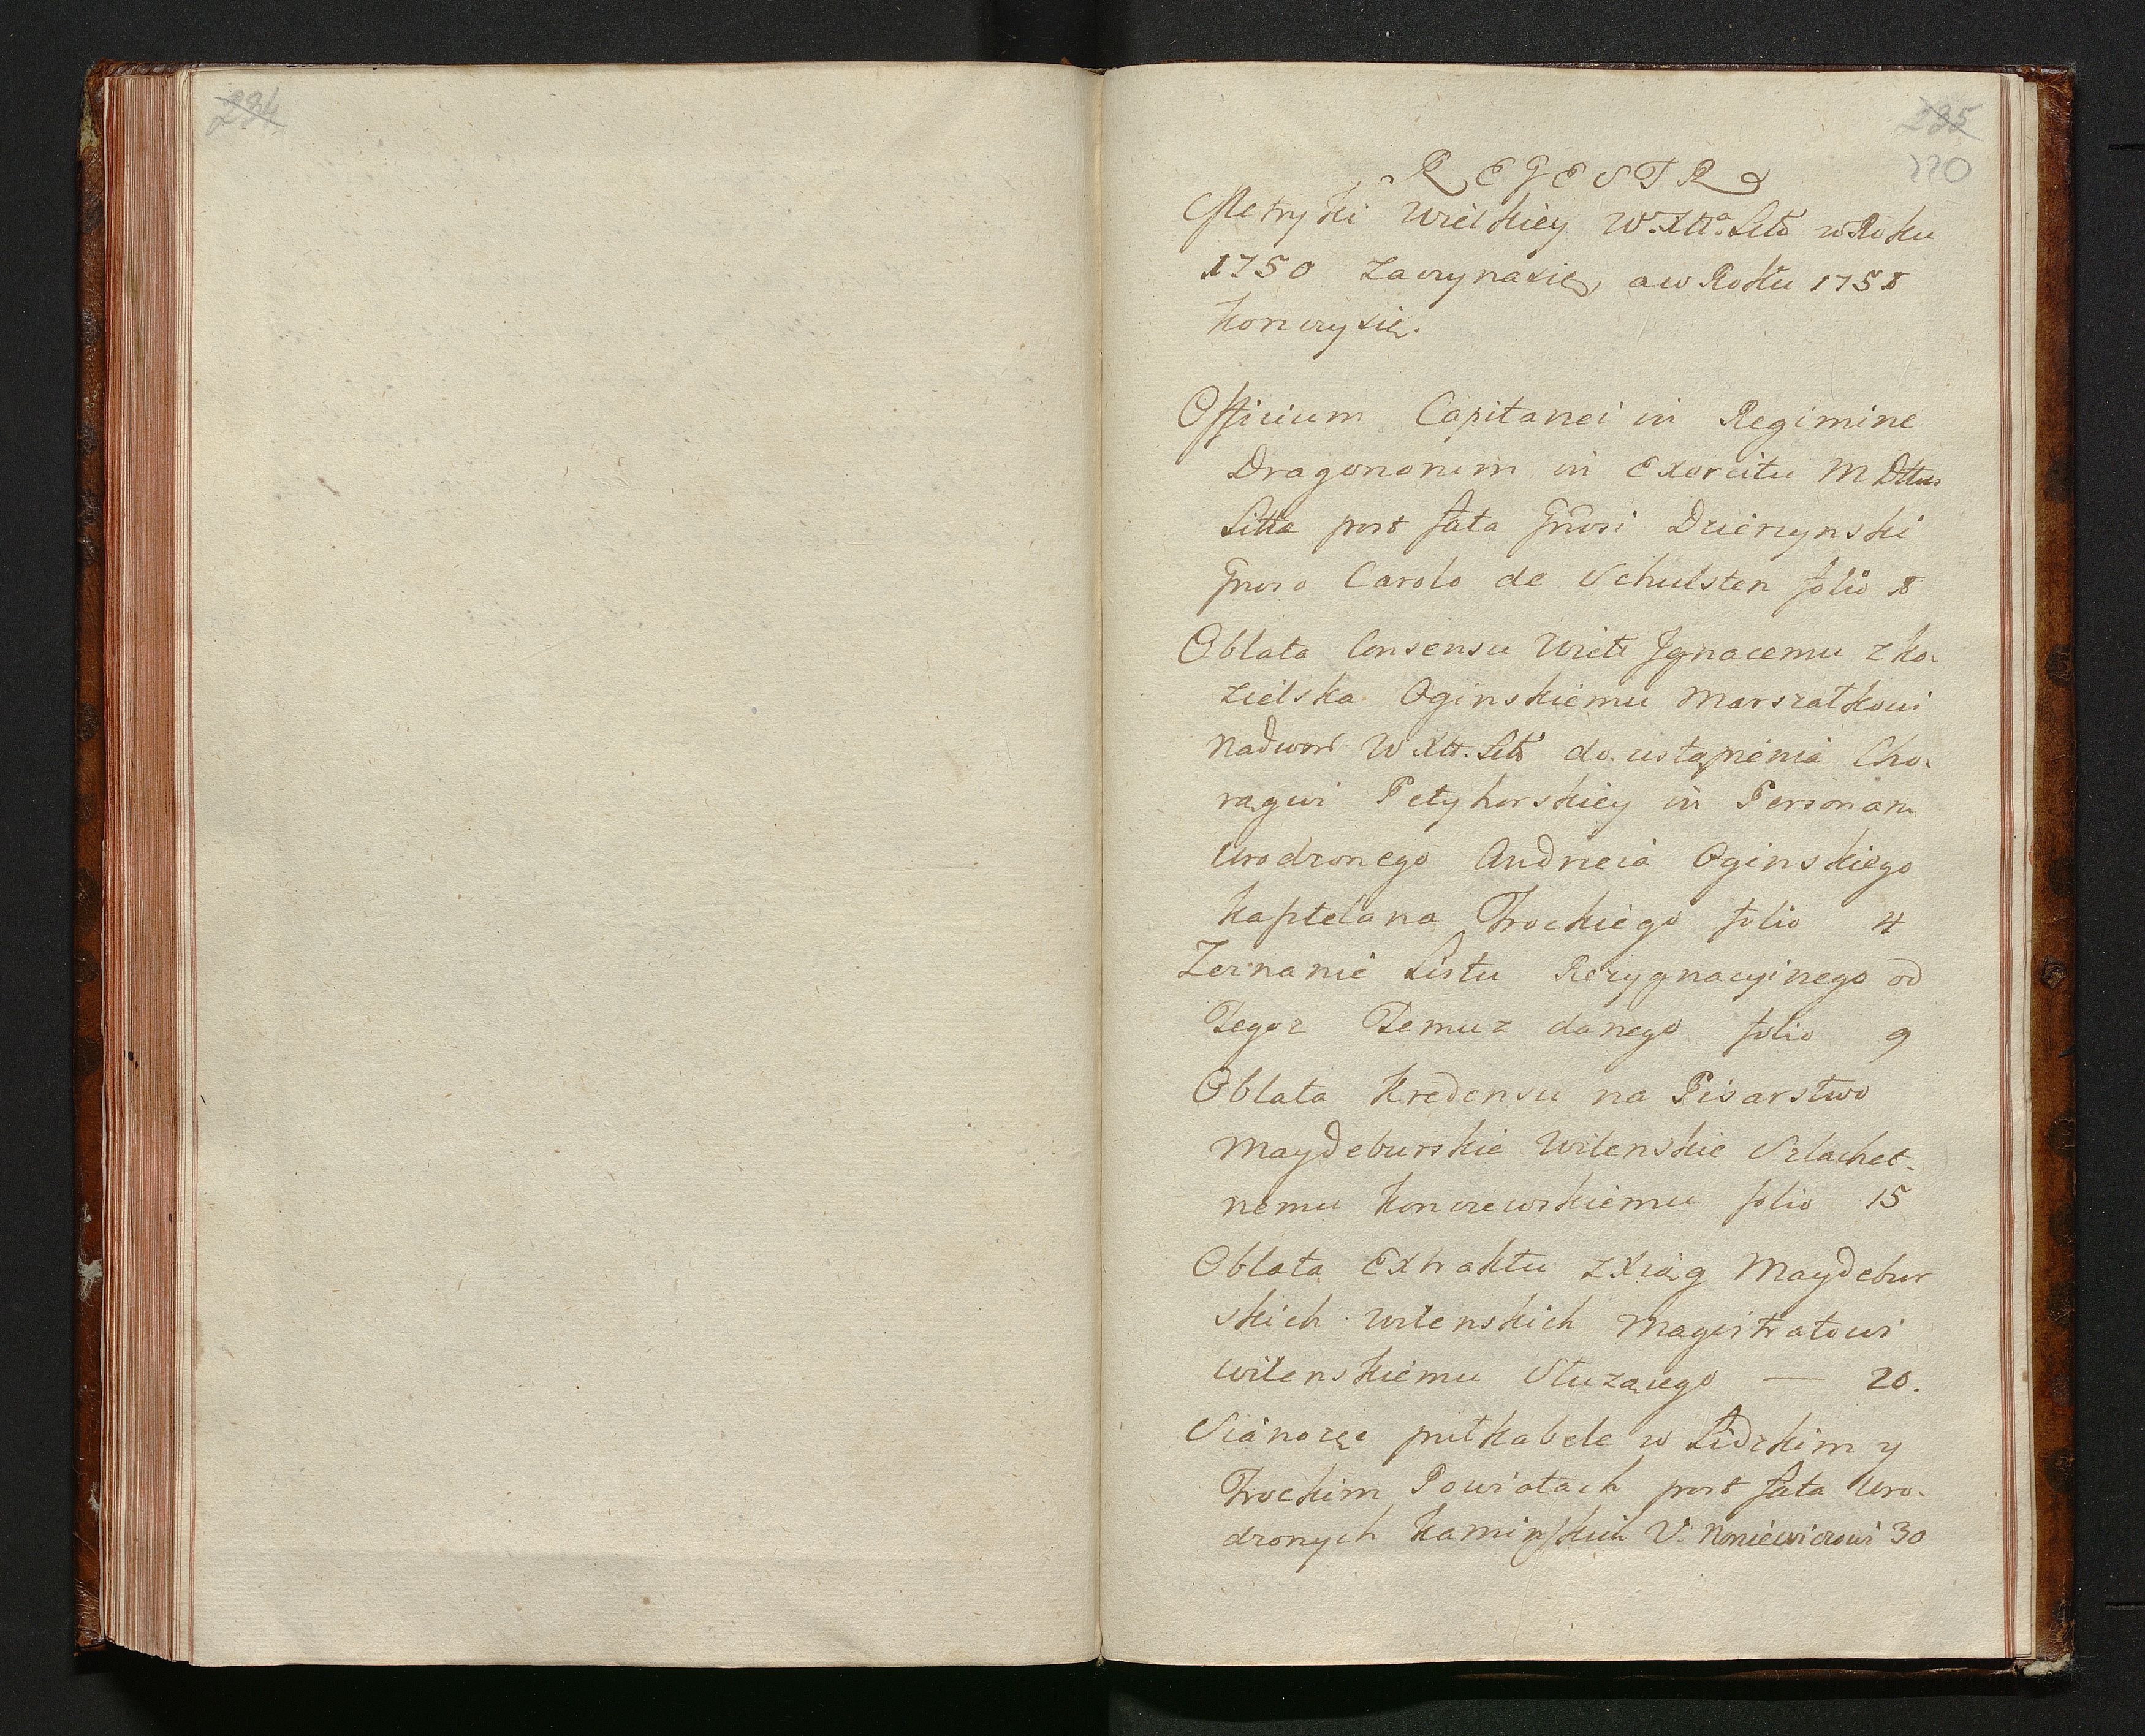 234
235
220
REGESTR
Metryki Wielkiey W. Xtta Litt w Roku
1750 zaczyna się, a w Roku 1758
konczy się.
Officium Capitanei in Regimine
Dragonorum in Exercitu M Dttus
Litta post fata Gnosi Dzierzynski
Gnoso Carolo de Schulsten folio 8
Oblata Consensu Wielu Ignacemu z Ko-
zielska Oginskiemu Marszałkowi
Nadwor W. Xtt. Litt do ustąpienia Cho-
rągwi Petyhorskiey in Personam
Urodzonego Andrzeia Oginskiego
Kaptelana Trockiego folio 4
Zeznanie Listu Rezygnacyinego od
Tegoz Temuz danego folio 9
Oblata Kredensu na Pisarstwo
Maydeburskie Wilenskie Szlachet-
nemu Konczewskiemu folio 15
Oblata Extraktu z Xiąg Maydebur
skich Wilenskich Magistratowi
Wilenskiemu Słuzącego — 20.
Sianozęc putkabele w Lidzkim y
Trockim Powiatach post fata Uro-
dzonych Kaminskich U. Noniewiczowi 30